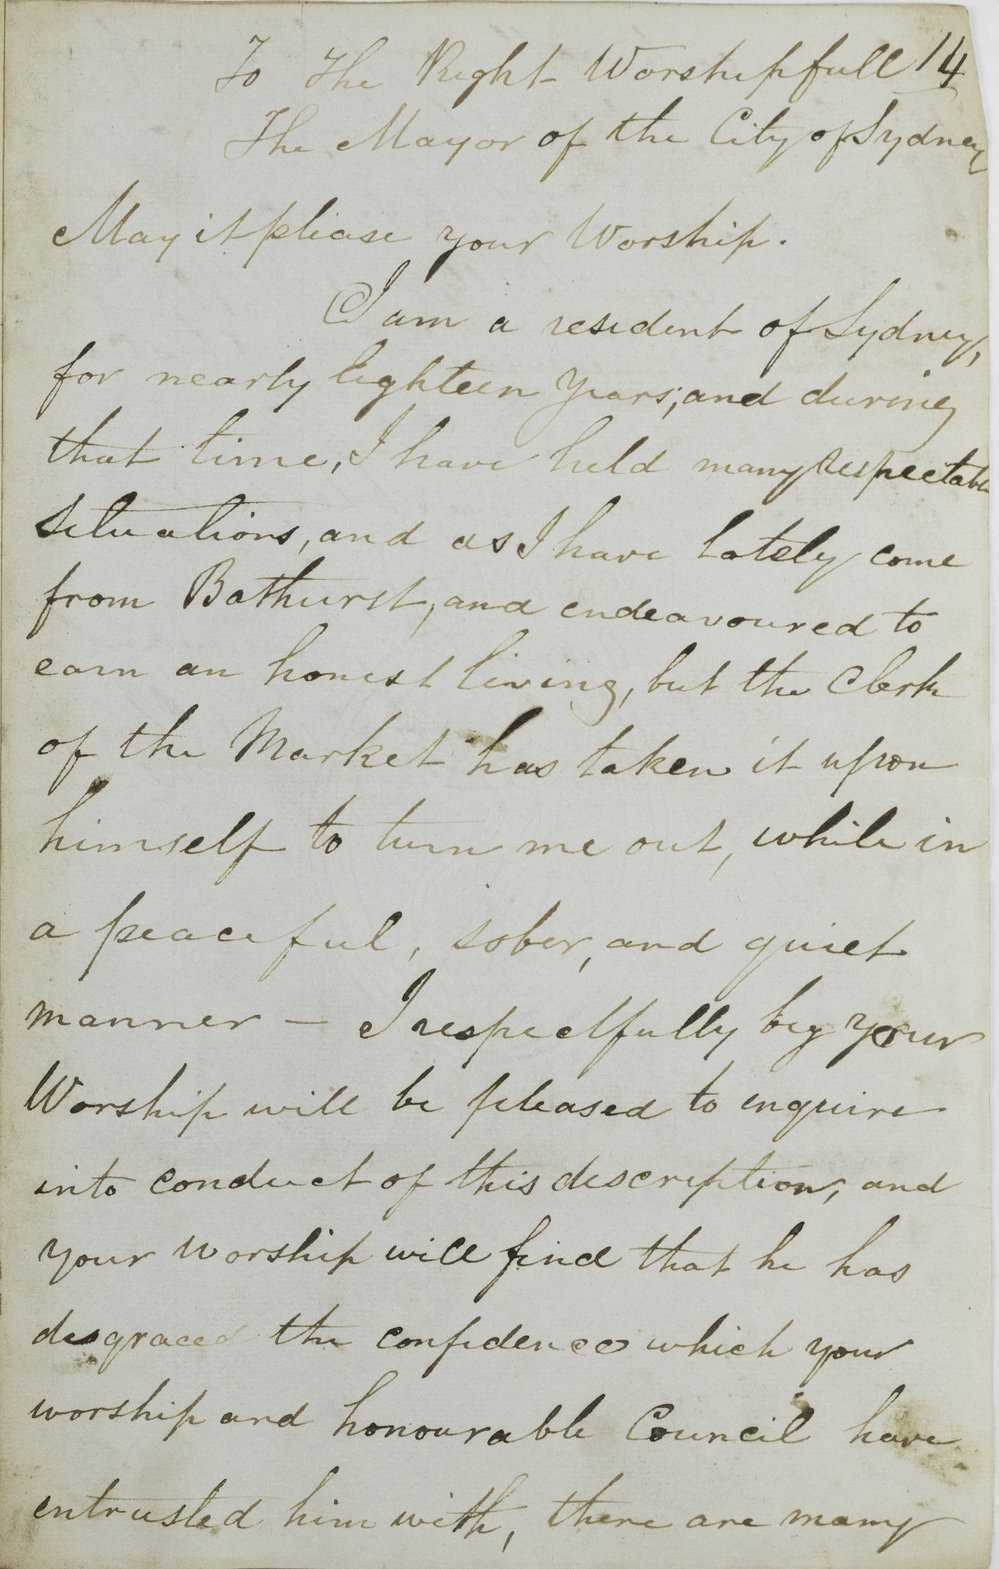 To the Right Worshipfull 114
The Mayor of the City of Sydney
May it please your Worship.
I am a resident of Sydney,
for nearly Eighteen Years, and during
that time, I have held many respectable
situations, and as I have lately come
from Bathurst, and endeavoured to
earn an honest living, but the Clerk
of the Market has taken it upon
himself to turn me out, while in
a peaceful, sober, and quiet
manner — I respectfully beg your
Worship will be pleased to enquire
into conduct of this description, and
your worship will find that he has
disgraced the confidence which your
worship and honourable Council have
entrusted him with, there are many